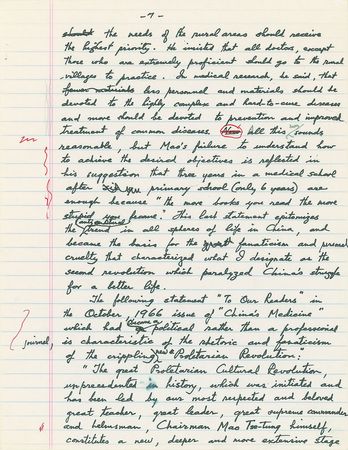 - 7 -
should the needs of the rural areas should receive
the highest priority. He insisted that all doctors, except
those who are extremely proficient should go to the rural
villages to practice. In medical research, he said, that
fewer materials less personnel and materials should be
devoted to the highly complex and hard-to-cure diseases
and more should be devoted to prevention and improved
treatment of common diseases. Now All this sounds
reasonable, but Mao's failure to understand how
to achieve the desired objectives is reflected in
his suggestion that three years in a medical school
after primary school (only 6 years) are
enough because "the more books you read the more
stupid you become." This last statement epitomizes
the anticultural trend in all spheres of life in China, and
became the basis for the fanaticism and
cruelty that characterized what I designate as the
second revolution which paralyzed China's struggle
for a better life.
The following statement "To Our Readers" in
the October, 1966 issue of "China's Medicine"
which had become political rather than a professional
journal, is characteristic of the rhetoric and fanaticism
of the crippling new Proletarian Revolution:
"The great Proletarian Cultural Revolution,
unprecedented in history, which was initiated and
has been led by our most respected and beloved
great teacher, great leader, great supreme commander
and helmsman, Chairman Mao Tse-tung himself,
constitutes a new, deeper and more extensive stage